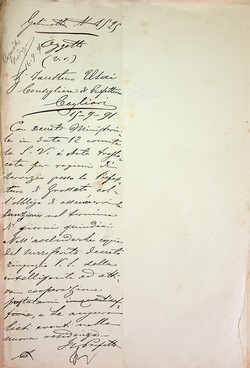 Gabinetto N. 1525
Oggetto
(v. o.)
Faustino Ussai
Consigliere di Prefettura
Cagliari
15-9-91
Con Decreto Ministeria
le in data 12 corrente
la S. V. è stata traslo
cata per ragioni di
servizio presso la Prefet
tura di Grosseto col
l'obbligo di assumervi le
funzioni nel termine
di giorni quindici.
Nell'accluderle copia
del surriferito decreto
ringrazio V. S. della
intelligente ed atti
va cooperazione
prestatami in questo uf
ficio, e le auguro
lieti eventi nella
nuova residenza.
Il Prefetto